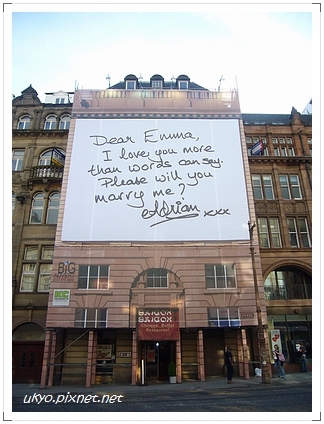 Dear Emma,
I love you more
than words can say.
Please will you
marry me?
Adrian xxx
BiG
SAIGON SAIGON
Chinese Buffet
Restaurant
ukyo.pixnet.net